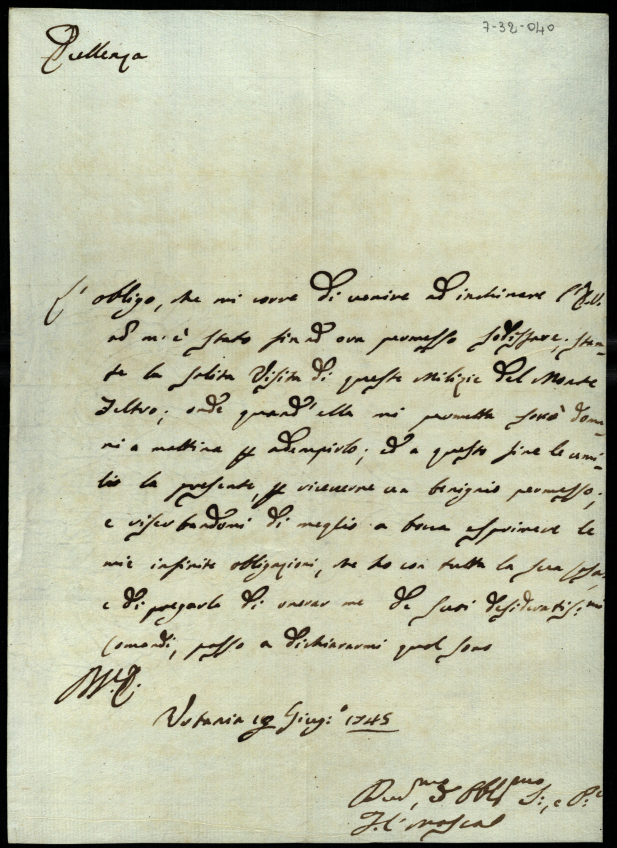 7-32-040
Eccellenza
L'obligo, che mi corre di venire ad inchinare l'E.V.
m'è stato fin ad ora permesso sodisfare, stan-
te la solita Visita di queste Milizie del Monte
Feltro; onde quand'ella mi permetta sarò doma-
ni a mattina per adempirlo; ed a questo fine le umi-
lio la presente, per riceverne un benigno permesso;
e riserbandomi di meglio a bocca esprimere le
mie infinite obligazioni, che ho con tutta la sua
e di pregarla di onorar me de suoi desideratis:mi
Comandi, passo a dichiararmi qual sono
D. V. E.
19 Giug:o 1745